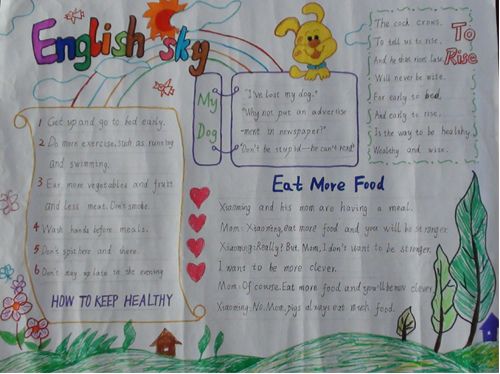 English sky
1 Get up and go to bed early.
2 Do more exercise, such as running
and swimming.
3 Eat more vegetables and fruit
and less meat. Don't smoke.
4 Wash hands before meals.
5 Don't spit here and there.
6 Don't stay up late in the evening
HOW TO KEEP HEALTHY
My
Dog
"I've lost my dog."
"Why not put an advertise
-ment in newspaper?"
"Don't be stupid—he can't read"
To
Rise
The cock crows.
To tell us to rise.
And he that rises late
Will never be wise.
For early to bed,
And early to rise.
Is the way to be healthy
Wealthy and wise.
Eat More Food
Xiaoming and his mom are having a meal.
Mom: Xiaoming, eat more food and you will be stronger.
Xiaoming: Really? But, Mom, I don't want to be stronger.
I want to be more clever.
Mom: Of course. Eat more food and you'll be clever
Xiaoming: No. Mom, pigs always eat much food.